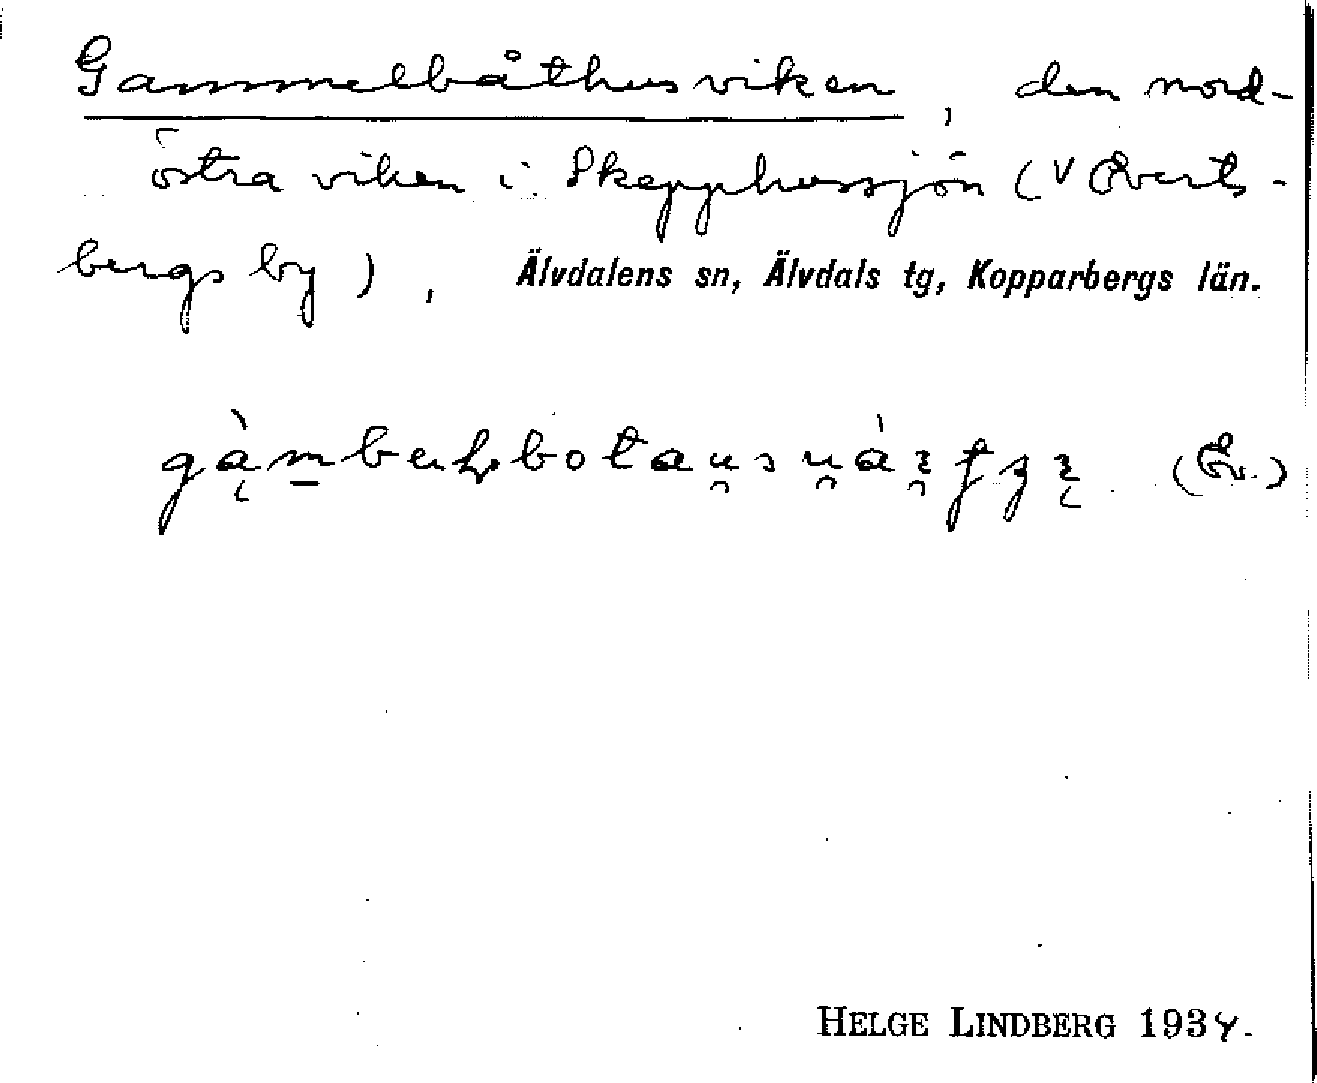 Gammelbåthusviken, den nord-
östra viken i Skepphussjön (V Everts-
bergs by), Älvdalens sn, Älvdals tg, Kopparbergs län.
(Ev.)
HELGE LINDBERG 1934.